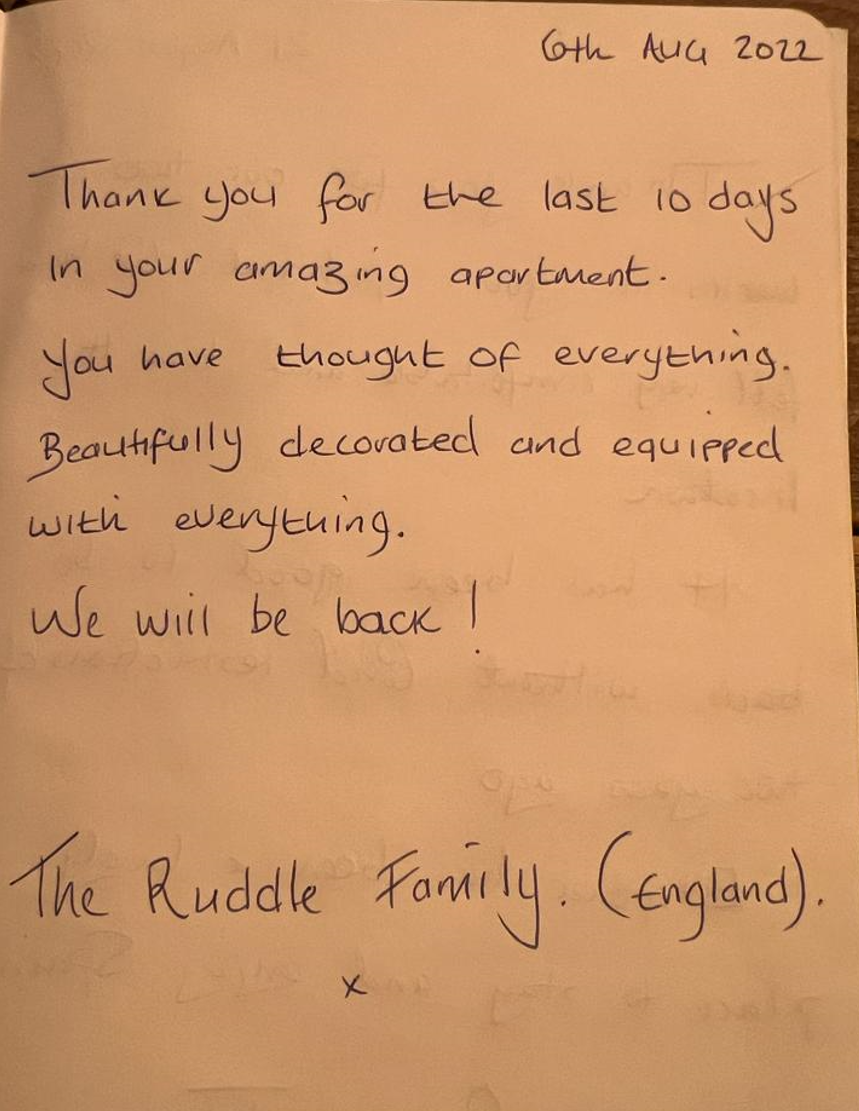 6th AUG 2022
Thank you for the last 10 days
in your amazing apartment.
You have thought of everything.
Beautifully decorated and equipped
with everything.
We will be back!
The Ruddle Family. (England).
x